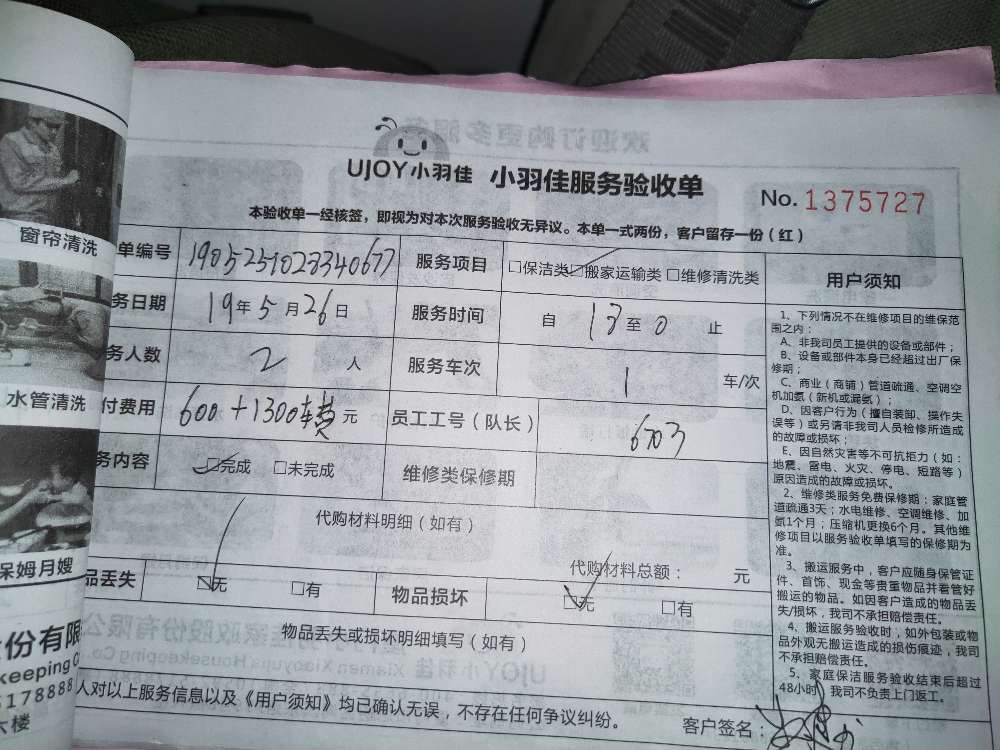 UJOY小羽佳 小羽佳服务验收单 No. 1375727
本验收单一经核签，即视为对本次服务验收无异议。本单一式两份，客户留存一份（红）
单编号 1905251028340677 服务项目 □保洁类 ☑搬家运输类 □维修清洗类
务日期 19年5月26日 服务时间 自 18 至 0 止
务人数 2 人 服务车次 1 车/次
付费用 600+1300车费 元 员工工号（队长） 6703
务内容 ☑完成 □未完成 维修类保修期
代购材料明细（如有）
代购材料总额： 元
品丢失 ☑无 □有 物品损坏 ☑无 □有
物品丢失或损坏明细填写（如有）
人对以上服务信息以及《用户须知》均已确认无误，不存在任何争议纠纷。
客户签名：
用户须知
1、下列情况不在维修项目的维保范
围之内：
A、非我司员工提供的设备或部件；
B、设备或部件本身已经超过出厂保
修期；
C、商业（商铺）管道疏通、空调空
机加氨（新机或漏氨）；
D、因客户行为（擅自装卸、操作失
误等）或另请非我司人员检修所造成
的故障或损坏；
E、因自然灾害等不可抗拒力（如：
地震、雷电、火灾、停电、短路等）
原因造成的故障或损坏。
2、维修类服务免费保修期；家庭管
道疏通3天；水电维修、空调维修、加
氨1个月；压缩机更换6个月。其他维
修项目以服务验收单填写的保修期为
准。
3、搬运服务中，客户应随身保管证
件、首饰、现金等贵重物品并看管好
搬运的物品。如因客户造成的物品丢
失/损坏，我司不承担赔偿责任。
4、搬运服务验收时，如外包装或物
品外观无搬运造成的损伤痕迹，我司
不承担赔偿责任。
5、家庭保洁服务验收结束后超过
48小时，我司不负责上门返工。
窗帘清洗
水管清洗
保姆月嫂
份有限
keeping C
5178888
六楼